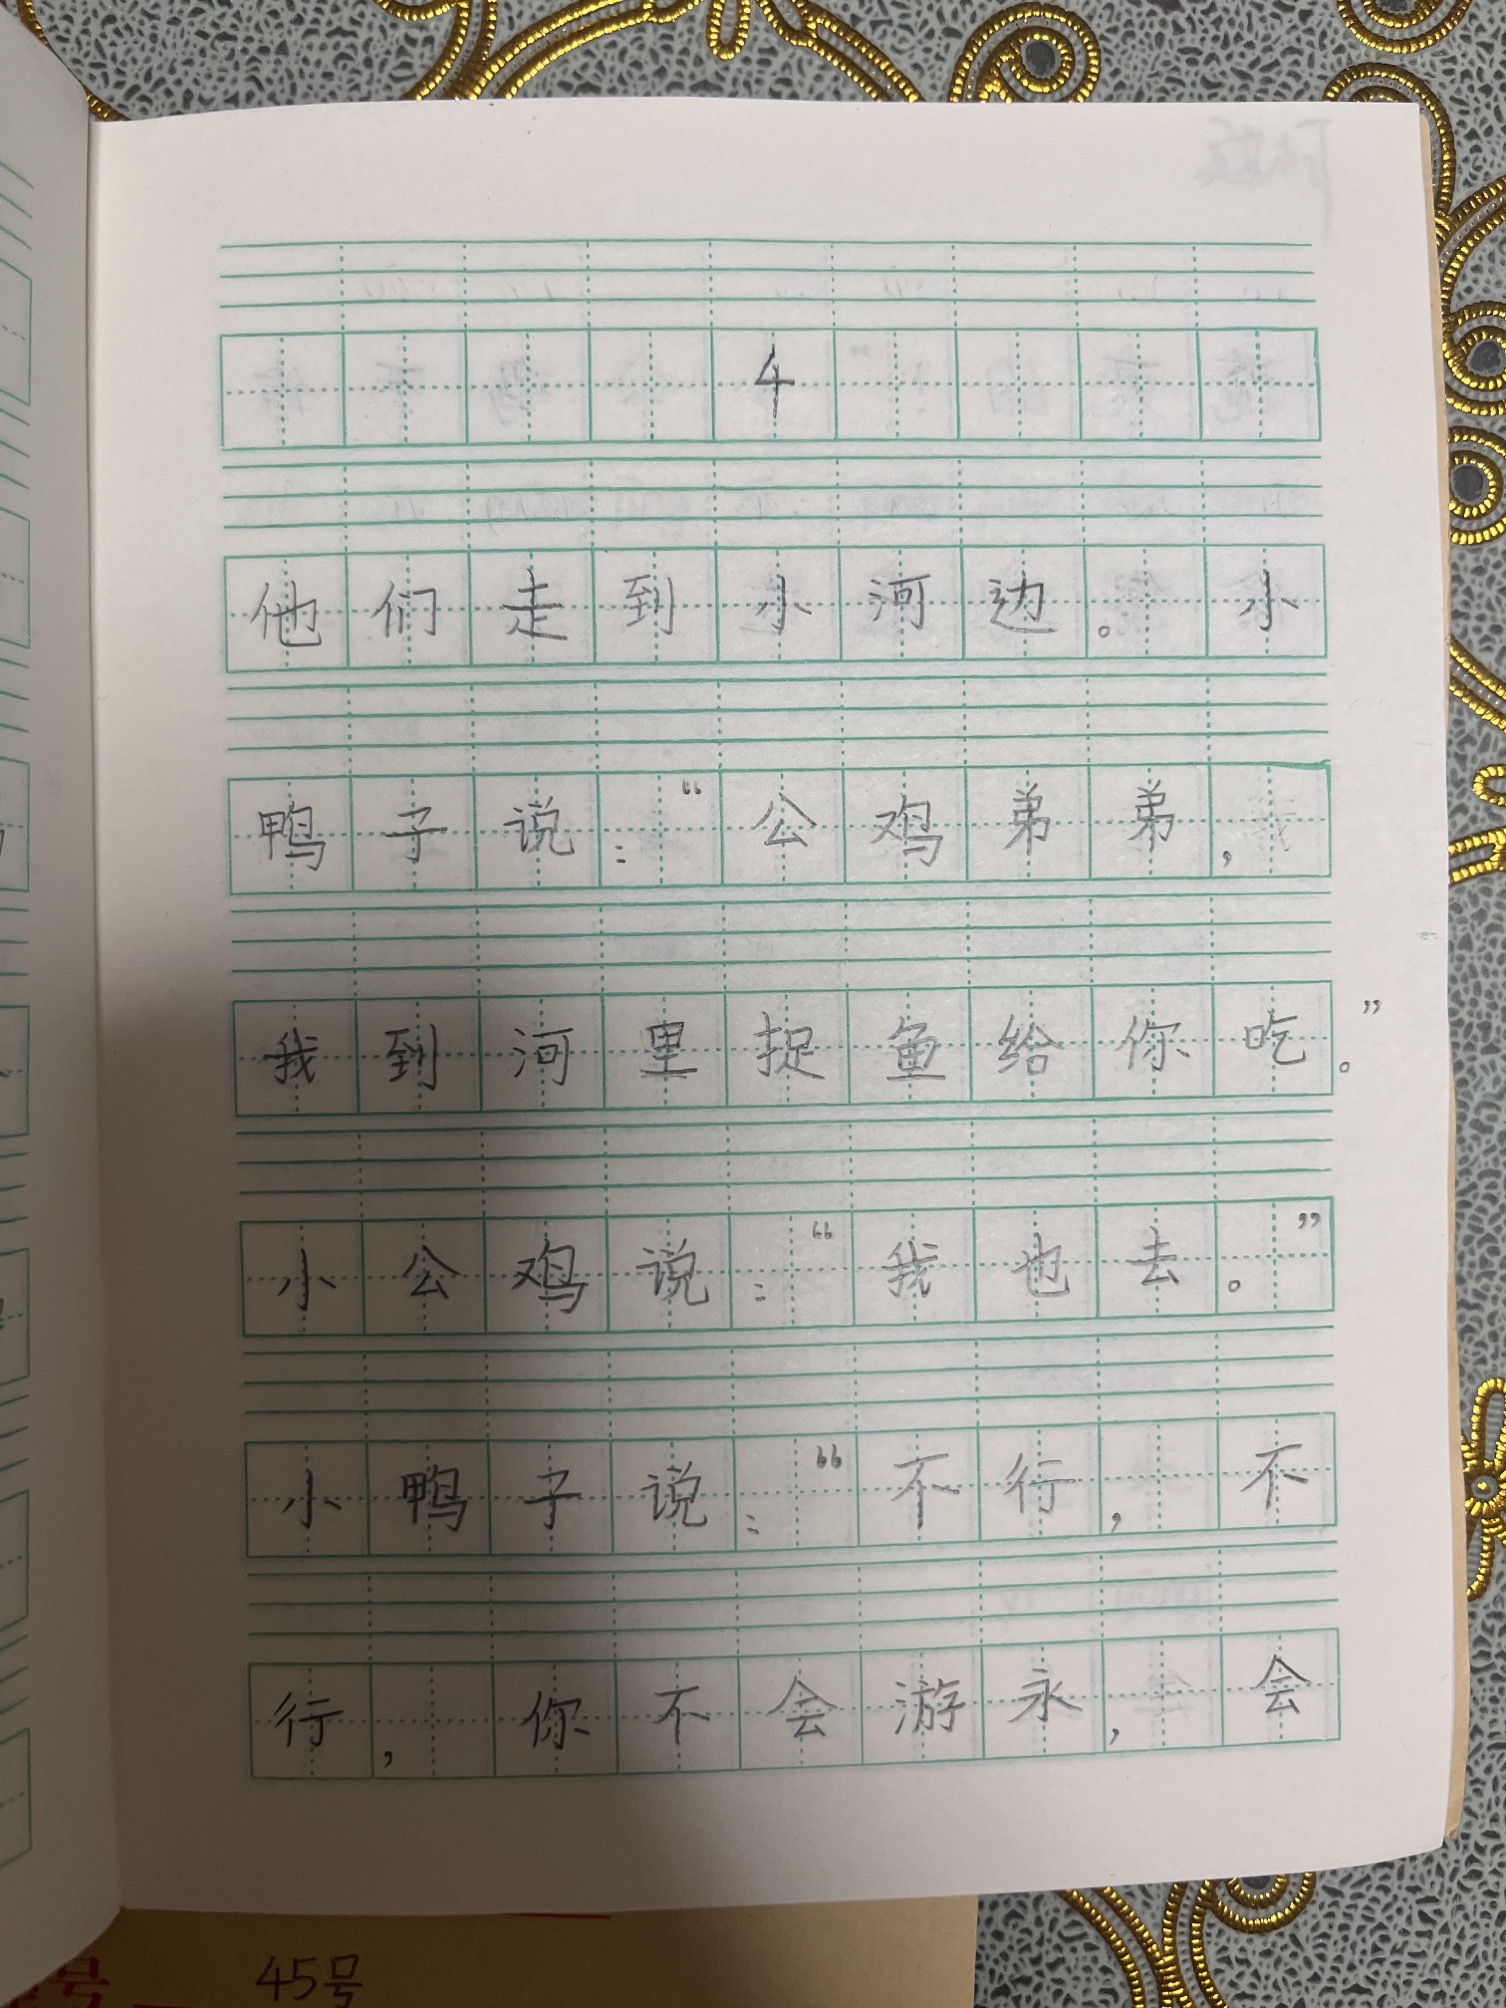 4
他们走到小河边。小
鸭子说：“公鸡弟弟，
我到河里捉鱼给你吃。”
小公鸡说：“我也去。”
小鸭子说：“不行，不
行，你不会游永，会
号 45号